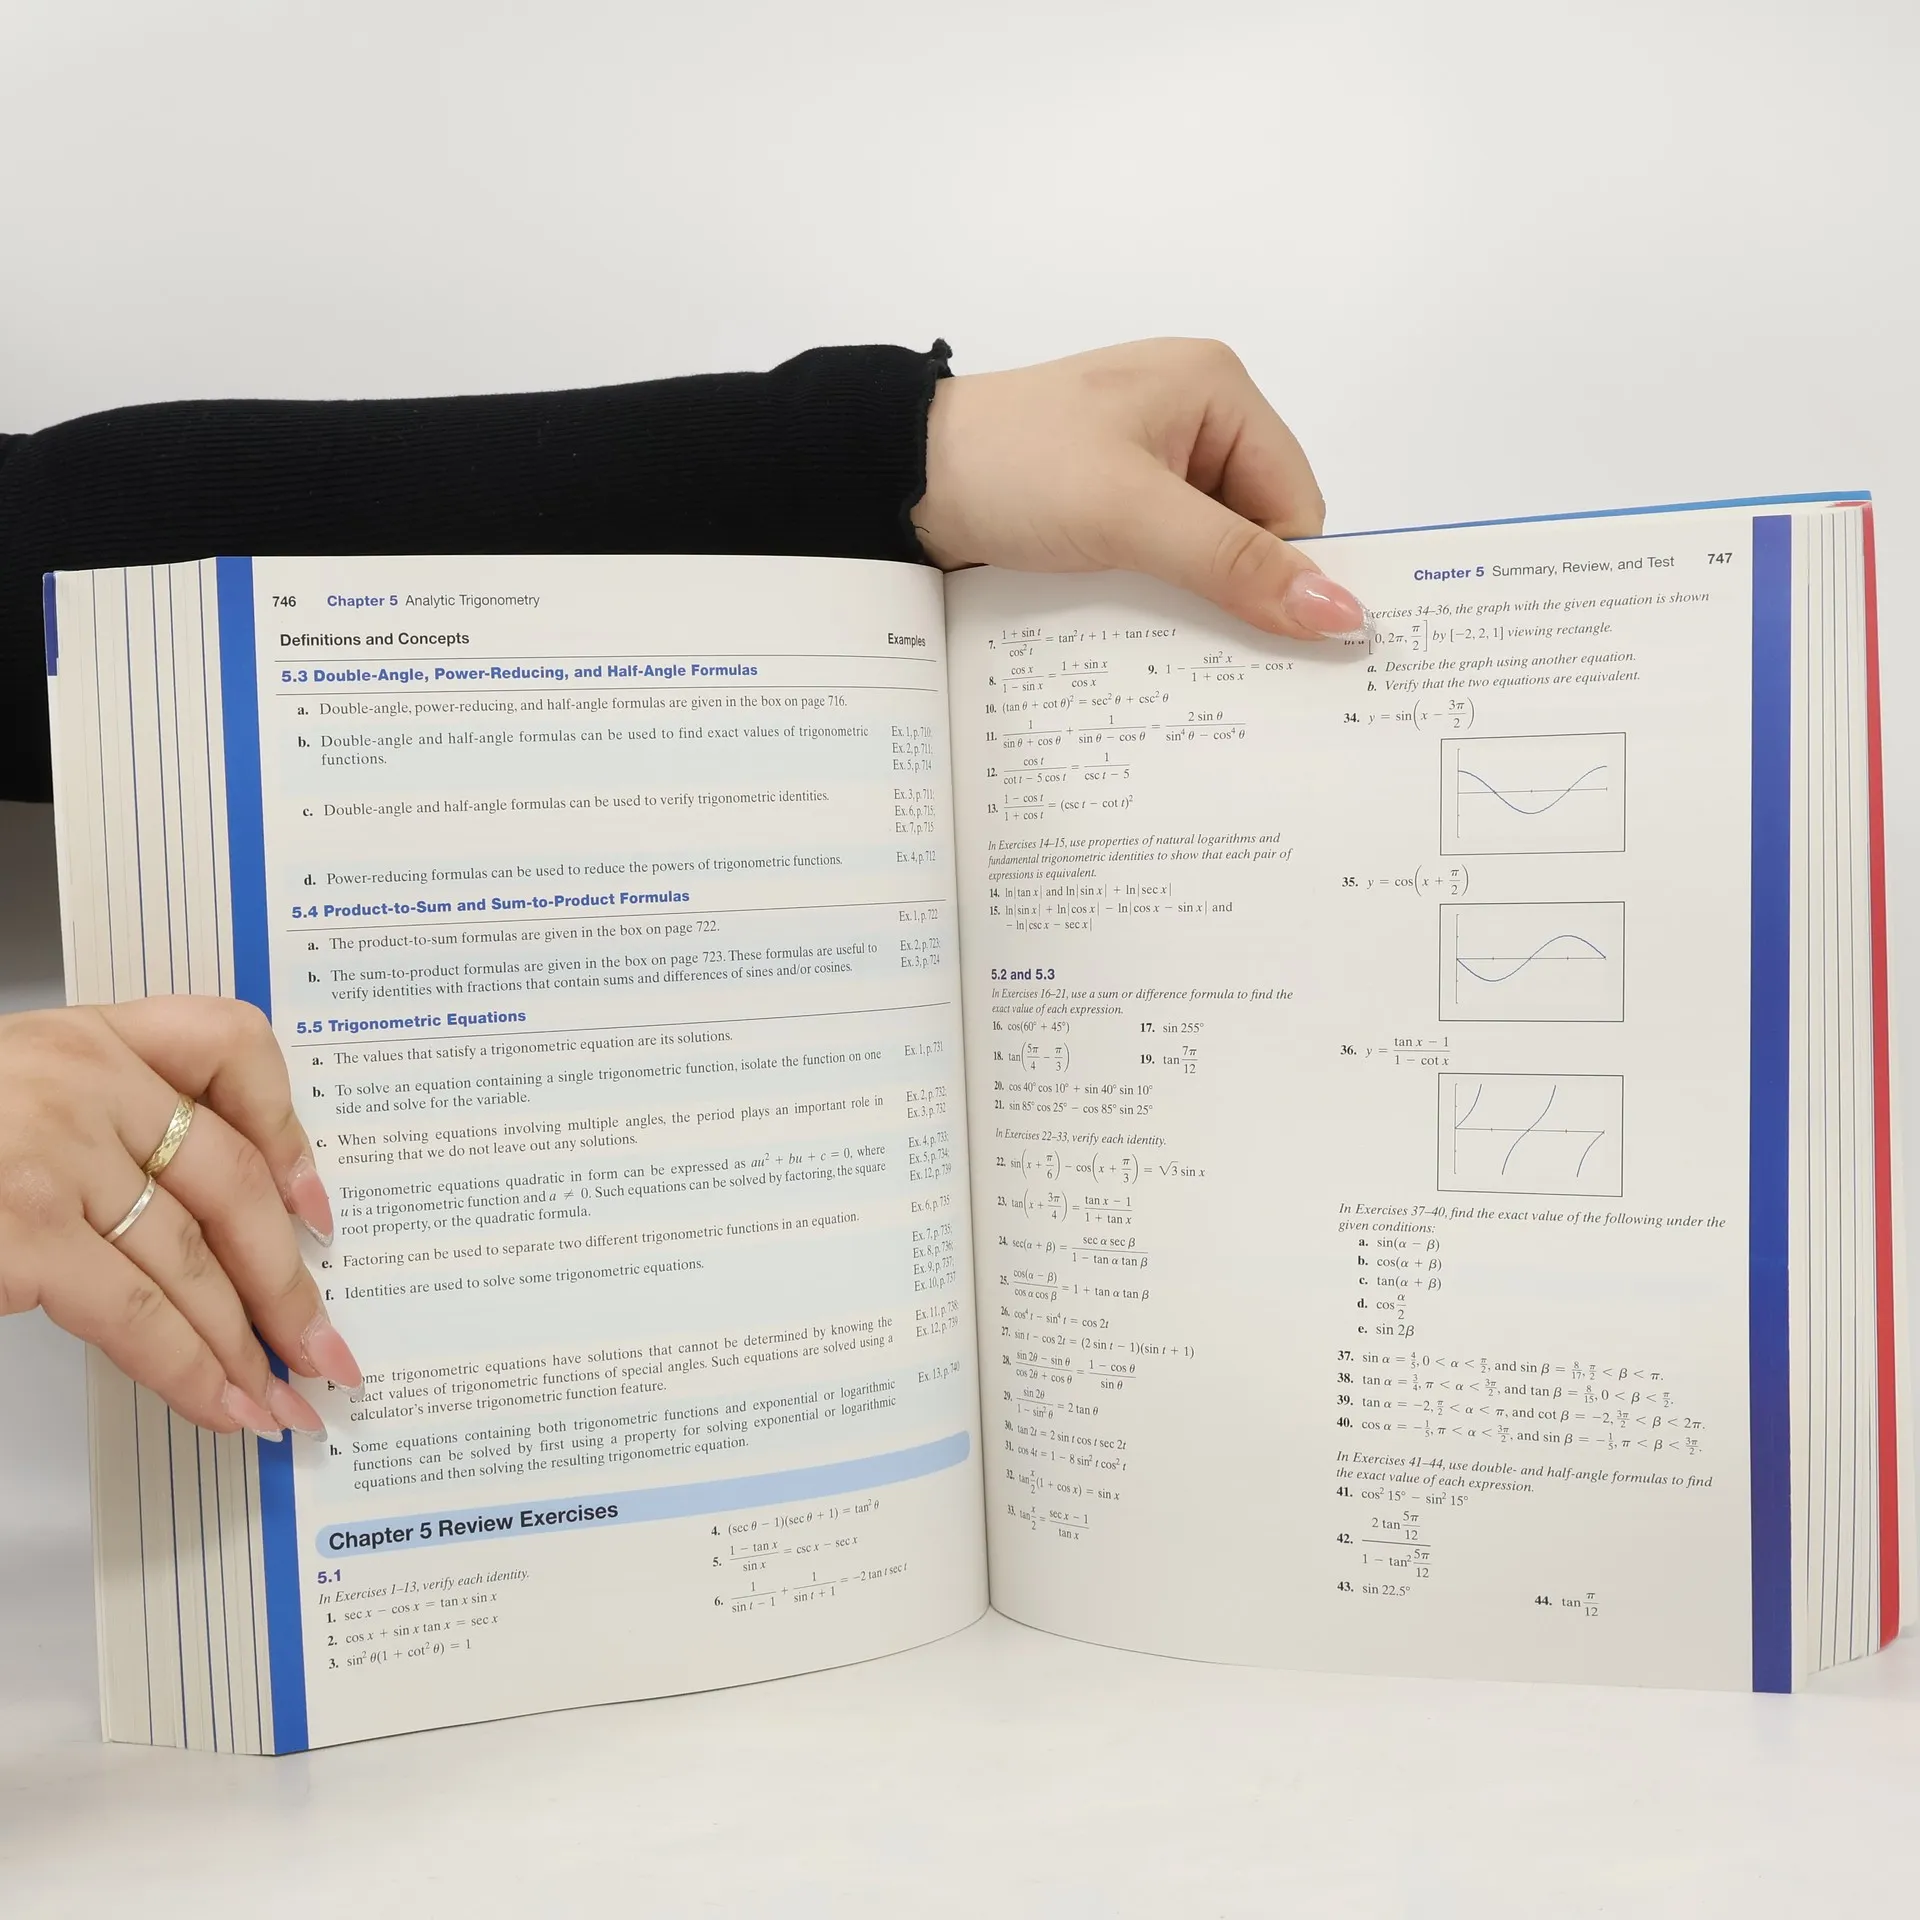 746 Chapter 5 Analytic Trigonometry
Definitions and Concepts Examples
5.3 Double-Angle, Power-Reducing, and Half-Angle Formulas
a. Double-angle, power-reducing, and half-angle formulas are given in the box on page 716.
b. Double-angle and half-angle formulas can be used to find exact values of trigonometric
functions.
Ex. 1, p. 710;
Ex. 2, p. 711;
Ex. 5, p. 714
c. Double-angle and half-angle formulas can be used to verify trigonometric identities.
Ex. 3, p. 711;
Ex. 6, p. 715;
Ex. 7, p. 715
d. Power-reducing formulas can be used to reduce the powers of trigonometric functions. Ex. 4, p. 712
5.4 Product-to-Sum and Sum-to-Product Formulas
a. The product-to-sum formulas are given in the box on page 722. Ex. 1, p. 722
b. The sum-to-product formulas are given in the box on page 723. These formulas are useful to
verify identities with fractions that contain sums and differences of sines and/or cosines.
Ex. 2, p. 723;
Ex. 3, p. 724
5.5 Trigonometric Equations
a. The values that satisfy a trigonometric equation are its solutions.
b. To solve an equation containing a single trigonometric function, isolate the function on one
side and solve for the variable.
Ex. 1, p. 731
c. When solving equations involving multiple angles, the period plays an important role in
ensuring that we do not leave out any solutions.
Ex. 2, p. 732;
Ex. 3, p. 732
Trigonometric equations quadratic in form can be expressed as au² + bu + c = 0, where
u is a trigonometric function and a ≠ 0. Such equations can be solved by factoring, the square
root property, or the quadratic formula.
Ex. 4, p. 733;
Ex. 5, p. 734;
Ex. 12, p. 739
e. Factoring can be used to separate two different trigonometric functions in an equation. Ex. 6, p. 735
f. Identities are used to solve some trigonometric equations.
Ex. 7, p. 735;
Ex. 8, p. 736;
Ex. 9, p. 737;
Ex. 10, p. 737
trigonometric equations have solutions that cannot be determined by knowing the
values of trigonometric functions of special angles. Such equations are solved using a
calculator's inverse trigonometric function feature.
Ex. 11, p. 738;
Ex. 12, p. 739
h. Some equations containing both trigonometric functions and exponential or logarithmic
functions can be solved by first using a property for solving exponential or logarithmic
equations and then solving the resulting trigonometric equation.
Ex. 13, p. 740
Chapter 5 Review Exercises
5.1
In Exercises 1–13, verify each identity.
1. sec x − cos x = tan x sin x
2. cos x + sin x tan x = sec x
3. sin² θ(1 + cot² θ) = 1
4. (sec θ − 1)(sec θ + 1) = tan² θ
5. (1 − tan x)/(sin x) = csc x − sec x
6. 1/(sin t − 1) + 1/(sin t + 1) = −2 tan t sec t
Chapter 5 Summary, Review, and Test 747
7. (1 + sin t)/(cos² t) = tan² t + 1 + tan t sec t
8. (cos x)/(1 − sin x) = (1 + sin x)/(cos x) 9. 1 − (sin² x)/(1 + cos x) = cos x
10. (tan θ + cot θ)² = sec² θ + csc² θ
11. 1/(sin θ + cos θ) + 1/(sin θ − cos θ) = (2 sin θ)/(sin⁴ θ − cos⁴ θ)
12. (cos t)/(cot t − 5 cos t) = 1/(csc t − 5)
13. (1 − cos t)/(1 + cos t) = (csc t − cot t)²
In Exercises 14–15, use properties of natural logarithms and
fundamental trigonometric identities to show that each pair of
expressions is equivalent.
14. ln|tan x| and ln|sin x| + ln|sec x|
15. ln|sin x| + ln|cos x| − ln|cos x − sin x| and
− ln|csc x − sec x|
5.2 and 5.3
In Exercises 16–21, use a sum or difference formula to find the
exact value of each expression.
16. cos(60° + 45°) 17. sin 255°
18. tan(5π/4 − π/3) 19. tan 7π/12
20. cos 40° cos 10° + sin 40° sin 10°
21. sin 85° cos 25° − cos 85° sin 25°
In Exercises 22–33, verify each identity.
22. sin(x + π/6) − cos(x + π/3) = √3 sin x
23. tan(x + 3π/4) = (tan x − 1)/(1 + tan x)
24. sec(α + β) = (sec α sec β)/(1 − tan α tan β)
25. cos(α − β)/(cos α cos β) = 1 + tan α tan β
26. cos⁴ t − sin⁴ t = cos 2t
27. sin t − cos 2t = (2 sin t − 1)(sin t + 1)
28. (sin 2θ − sin θ)/(cos 2θ + cos θ) = (1 − cos θ)/(sin θ)
29. (sin 2θ)/(1 − sin² θ) = 2 tan θ
30. tan 2t = 2 sin t cos t sec 2t
31. cos 4t = 1 − 8 sin² t cos² t
32. tan x/2 (1 + cos x) = sin x
33. tan x/2 = (sec x − 1)/(tan x)
Exercises 34–36, the graph with the given equation is shown
[0, 2π, π/2] by [−2, 2, 1] viewing rectangle.
a. Describe the graph using another equation.
b. Verify that the two equations are equivalent.
34. y = sin(x − 3π/2)
35. y = cos(x + π/2)
36. y = (tan x − 1)/(1 − cot x)
In Exercises 37–40, find the exact value of the following under the
given conditions:
a. sin(α − β)
b. cos(α + β)
c. tan(α + β)
d. cos α/2
e. sin 2β
37. sin α = 4/5, 0 < α < π/2, and sin β = 8/17, π/2 < β < π.
38. tan α = 3/4, π < α < 3π/2, and tan β = 8/15, 0 < β < π/2.
39. tan α = −2, π/2 < α < π, and cot β = −2, 3π/2 < β < 2π.
40. cos α = −1/5, π < α < 3π/2, and sin β = −1/5, π < β < 3π/2.
In Exercises 41–44, use double- and half-angle formulas to find
the exact value of each expression.
41. cos² 15° − sin² 15°
42. (2 tan 5π/12)/(1 − tan² 5π/12)
43. sin 22.5° 44. tan π/12